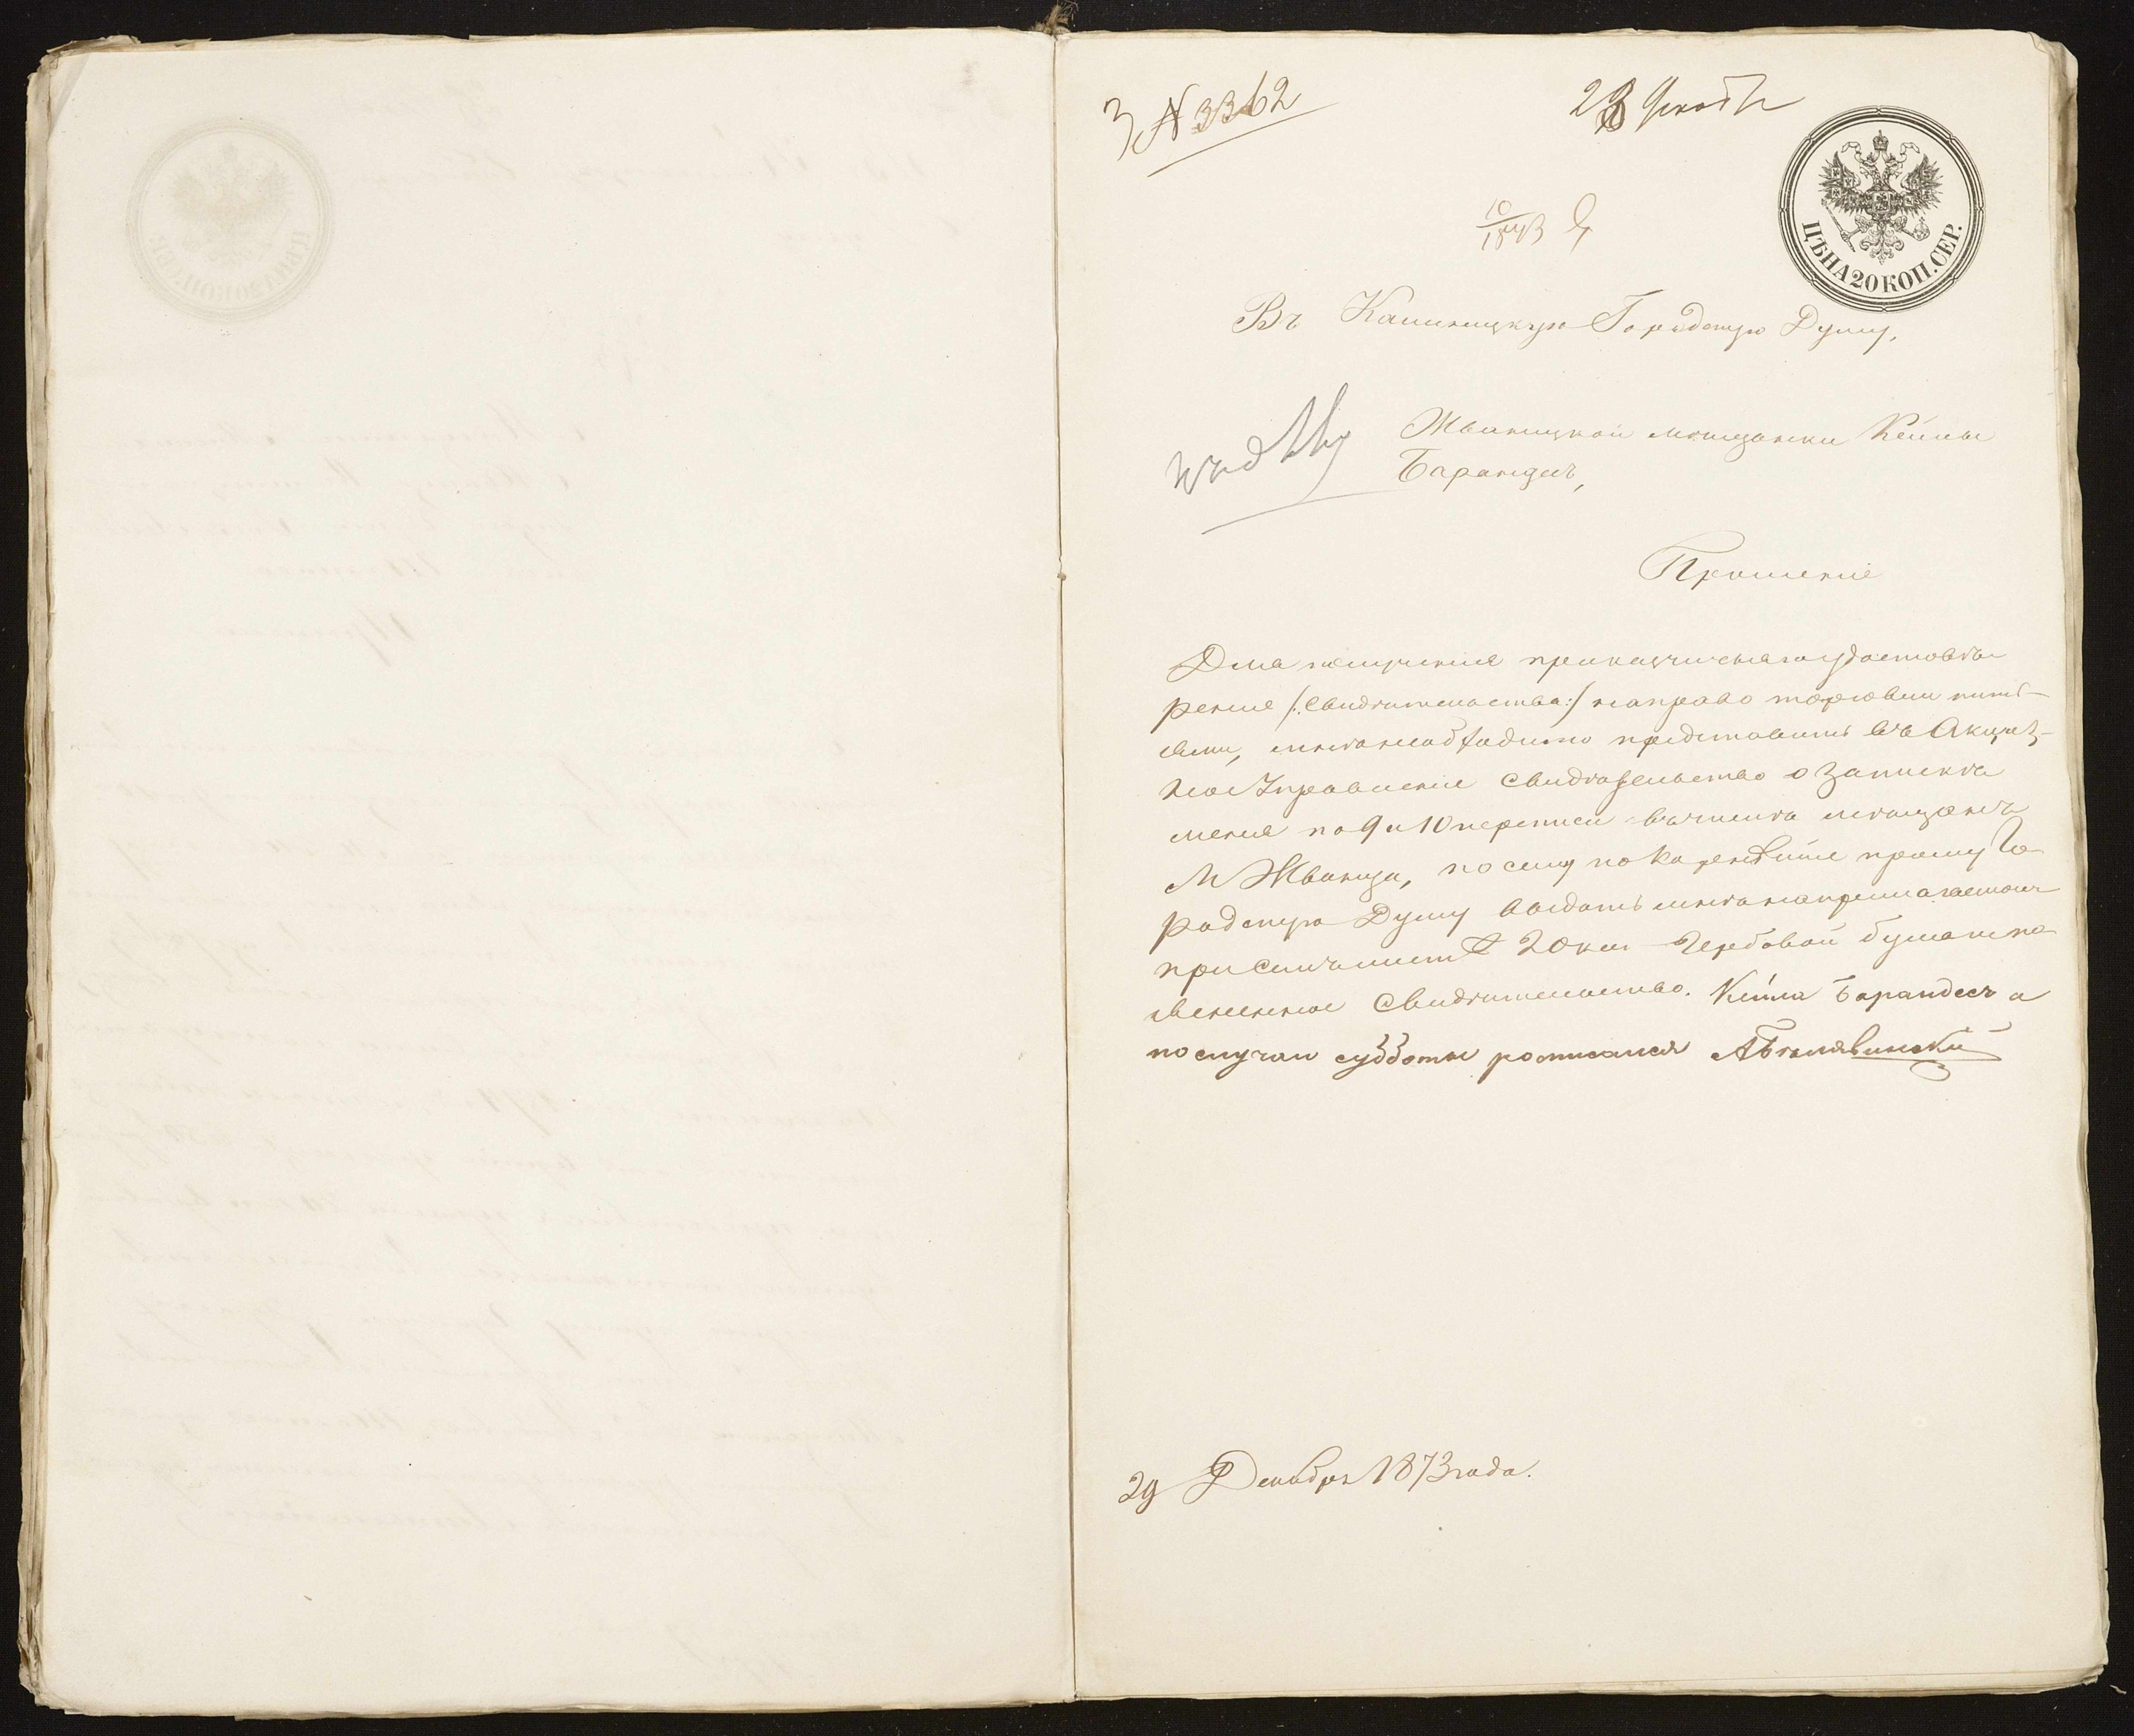 № 3362
28 Декабр
ЦѢНА 20 КОП. СЕР.
Въ Каменицкую Городскую Думу,
Жванецкой мѣщанки Кейлы
Барандесъ,
Прошеніе
Для полученія приказчичьяго удостовѣ
ренія /:свидѣтельства:/ направо торговли пить-
ями, мнѣ необходимо представить въ Акциз-
ное Управленіе свидѣтельство о запискѣ
меня по 9 и 10 переписи въ числѣ мѣщанъ
М Жванца, по сему покорнѣйше прошу Го
родскую Думу выдать мнѣ на прилагаемомъ
при семъ листѣ 20 коп гербовой бумаги по
свидѣтельство. Кейла Барандесъ а
по случаю субботы росписался
29 Декабря 1873 года.